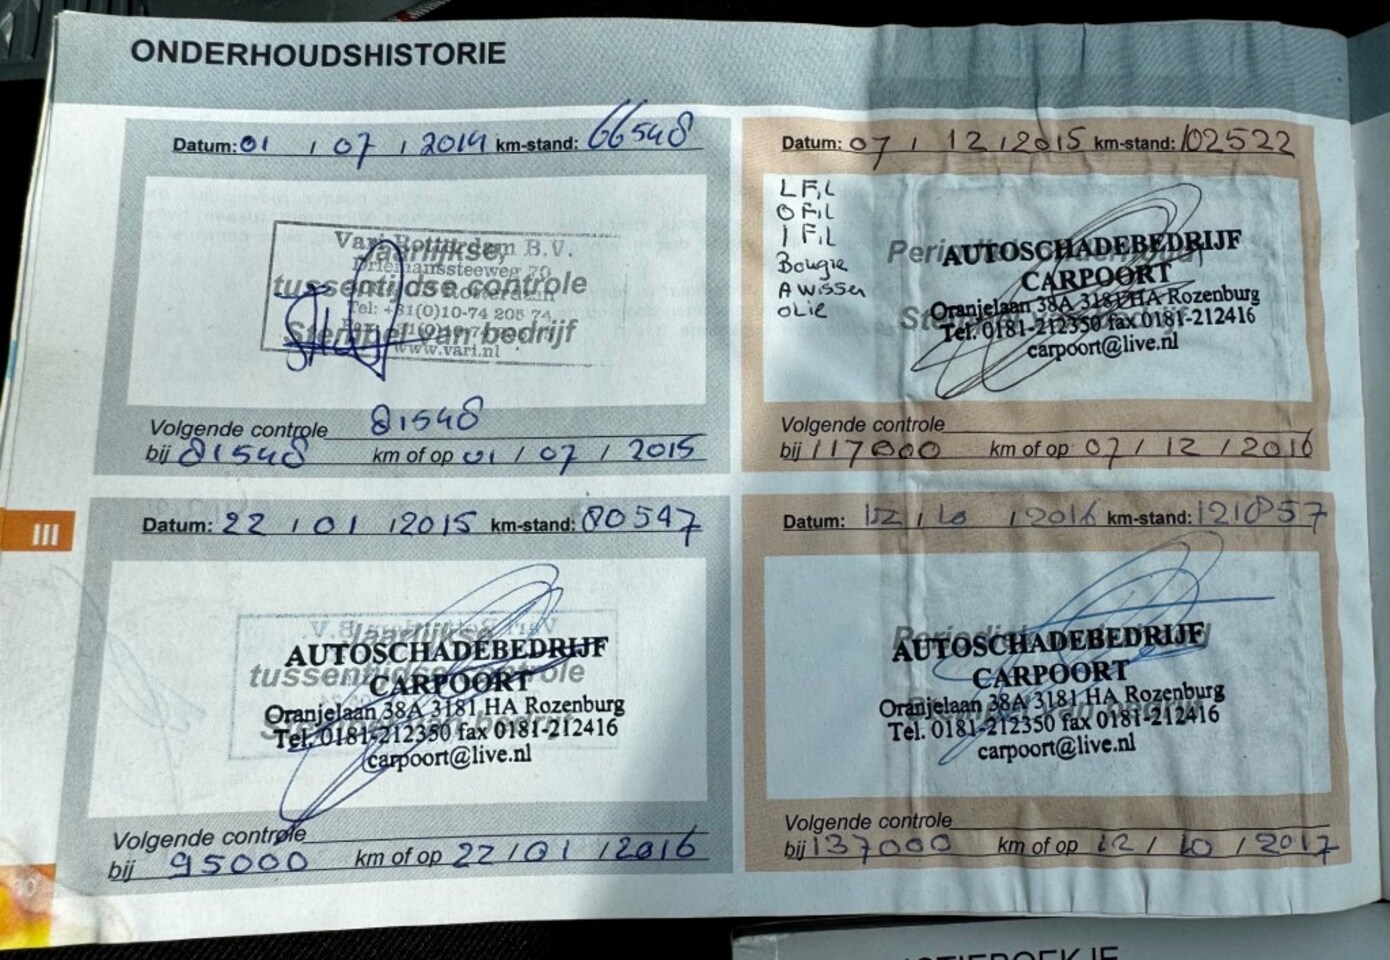 ONDERHOUDSHISTORIE
Datum: 01 / 07 / 2014 km-stand: 66548
Vari Rotterdam B.V.
Jaarlijkse,
Driemanssteeweg 70
tussentijdse controle
Rotterdam
Tel: +31(0)10-74 205 74
Stempel van bedrijf
www.vari.nl
Volgende controle 81548
bij 81548 km of op 01 / 07 / 2015
Datum: 07 / 12 / 2015 km-stand: 102522
L FiL
O FiL
I FiL
Bougie
A wisser
OLie
AUTOSCHADEBEDRIJF
CARPOORT
Oranjelaan 38A 3181 HA Rozenburg
Tel. 0181-212350 fax 0181-212416
carpoort@live.nl
Volgende controle
bij 117000 km of op 07 / 12 / 2016
III
Datum: 22 / 01 / 2015 km-stand: 80547
Jaarlijkse
AUTOSCHADEBEDRIJF
tussentijdse controle
CARPOORT
Oranjelaan 38A 3181 HA Rozenburg
Stempel van bedrijf
Tel. 0181-212350 fax 0181-212416
carpoort@live.nl
Volgende controle
bij 95000 km of op 22 / 01 / 2016
Datum: 12 / 10 / 2016 km-stand: 121857
AUTOSCHADEBEDRIJF
CARPOORT
Oranjelaan 38A 3181 HA Rozenburg
Tel. 0181-212350 fax 0181-212416
carpoort@live.nl
Volgende controle
bij 137000 km of op 12 / 10 / 2017